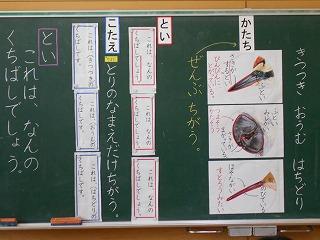 きつつき　おうむ　はちどり
かたち
ぜんぶちがう。
とい
これは、なんの
くちばしでしょう。
これは、なんの
くちばしでしょう。
これは、なんの
くちばしでしょう。
こたえ
とりのなまえだけちがう。
これは、きつつきの
くちばしです。
これは、おうむの
くちばしです。
これは、はちどりの
くちばしです。
とい
これは、なんの
くちばしでしょう。